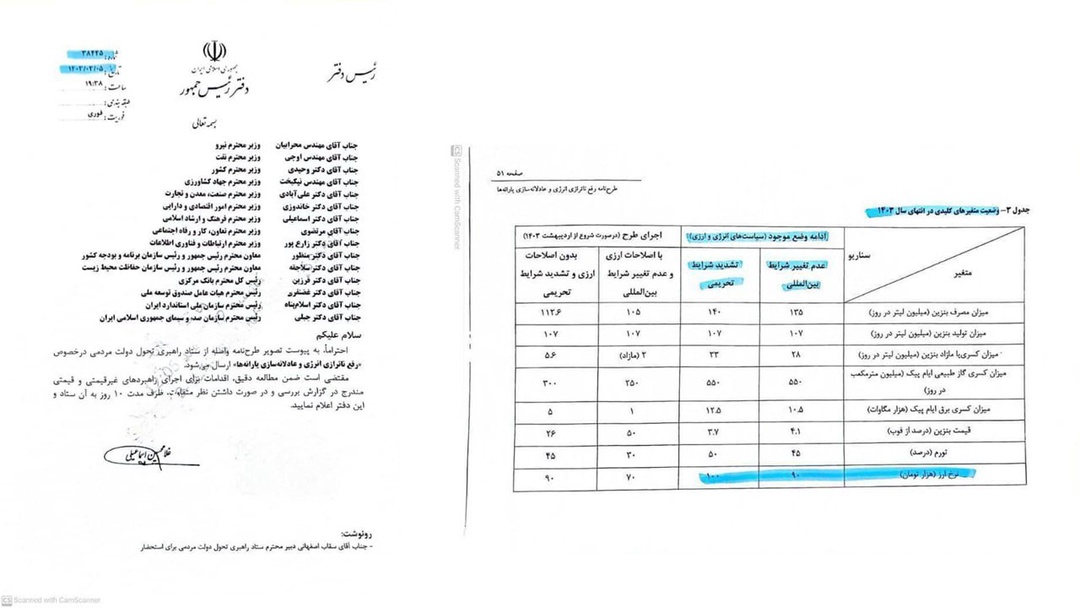 جمهوری اسلامی ایران
دفتر رئیس جمهور
رئیس دفتر
۳۸۴۲۵
تاریخ: ۱۴۰۳/۰۳/۰۵
ساعت: ۱۹:۳۸
طبقه بندی:
فوریت: فوری
بسمه تعالی
جناب آقای مهندس محرابیان وزیر محترم نیرو
جناب آقای مهندس اوجی وزیر محترم نفت
جناب آقای دکتر وحیدی وزیر محترم کشور
جناب آقای مهندس نیکبخت وزیر محترم جهاد کشاورزی
جناب آقای دکتر علی‌آبادی وزیر محترم صنعت، معدن و تجارت
جناب آقای دکتر خاندوزی وزیر محترم امور اقتصادی و دارایی
جناب آقای دکتر اسماعیلی وزیر محترم فرهنگ و ارشاد اسلامی
جناب آقای مرتضوی وزیر محترم تعاون، کار و رفاه اجتماعی
جناب آقای دکتر زارع پور وزیر محترم ارتباطات و فناوری اطلاعات
جناب آقای دکتر منظور معاون محترم رئیس جمهور و رئیس سازمان برنامه و بودجه کشور
جناب آقای دکتر سلاجقه معاون محترم رئیس جمهور و رئیس سازمان حفاظت محیط زیست
جناب آقای دکتر فرزین رئیس کل محترم بانک مرکزی
جناب آقای دکتر غضنفری رئیس محترم هیات عامل صندوق توسعه ملی
جناب آقای دکتر اسلام‌پناه رئیس محترم سازمان ملی استاندارد ایران
جناب آقای دکتر جبلی رئیس محترم سازمان صدا و سیمای جمهوری اسلامی ایران
سلام علیکم
احتراماً، به پیوست تصویر طرح‌نامه واصله از ستاد راهبری تحول دولت مردمی درخصوص
«رفع ناترازی انرژی و عادلانه‌سازی یارانه‌ها» ارسال می‌شود.
مقتضی است ضمن مطالعه دقیق، اقدامات برای اجرای راهبردهای غیرقیمتی و قیمتی
مندرج در گزارش بررسی و در صورت داشتن نظر متفاوت، ظرف مدت ۱۰ روز به آن ستاد و
این دفتر اعلام نمایید.
غلامحسین اسماعیلی
رونوشت:
- جناب آقای سقاب اصفهانی دبیر محترم ستاد راهبری تحول دولت مردمی برای استحضار
CS Scanned with CamScanner
CS Scanned with CamScanner
صفحه ۵۱
طرح‌نامه رفع ناترازی انرژی و عادلانه‌سازی یارانه‌ها
جدول ۳- وضعیت متغیرهای کلیدی در انتهای سال ۱۴۰۳
سناریو ادامه وضع موجود (سیاست‌های انرژی و ارزی) اجرای طرح (درصورت شروع از اردیبهشت ۱۴۰۳)
متغیر عدم تغییر شرایط بین‌المللی تشدید شرایط تحریمی با اصلاحات ارزی و عدم تغییر شرایط بین‌المللی بدون اصلاحات ارزی و تشدید شرایط تحریمی
میزان مصرف بنزین (میلیون لیتر در روز) ۱۳۵ ۱۴۰ ۱۰۵ ۱۱۲.۶
میزان تولید بنزین (میلیون لیتر در روز) ۱۰۷ ۱۰۷ ۱۰۷ ۱۰۷
میزان کسری یا مازاد بنزین (میلیون لیتر در روز) ۲۸ ۳۳ ۲ (مازاد) ۵.۶
میزان کسری گاز طبیعی ایام پیک (میلیون مترمکعب در روز) ۵۵۰ ۵۵۰ ۲۵۰ ۳۰۰
میزان کسری برق ایام پیک (هزار مگاوات) ۱۰.۵ ۱۲.۵ ۱ ۵
قیمت بنزین (درصد از فوب) ۴.۱ ۳.۷ ۵۰ ۲۶
تورم (درصد) ۴۵ ۵۰ ۳۰ ۴۵
نرخ ارز (هزار تومان) ۹۰ ۱۰۰ ۷۰ ۹۰